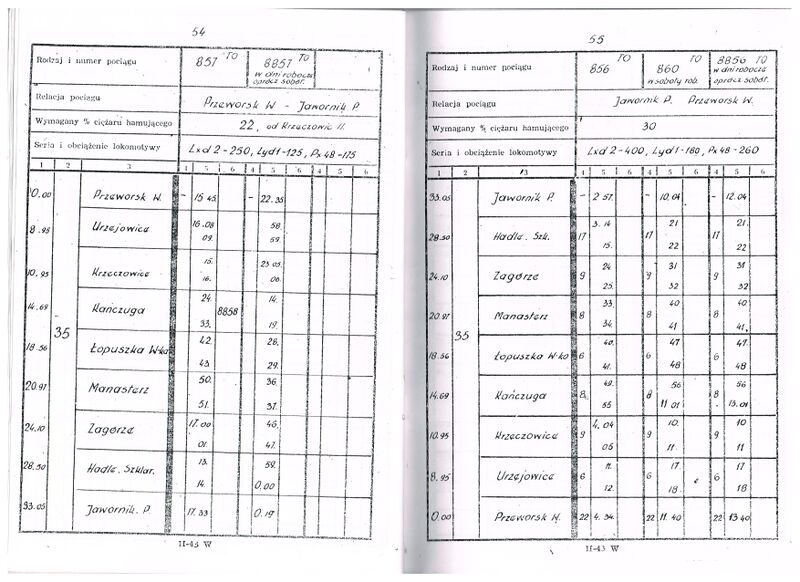 54
Rodzaj i numer pociągu 857 TO 8857 TO w dni robocze oprócz sobót.
Relacja pociągu Przeworsk W - Jawornik P.
Wymagany % ciężaru hamującego 22, od Krzeczowic 11.
Seria i obciążenie lokomotywy Lxd2-250, Lyd1-125, Px48-175
1 2 3 4 5 6 4 5 6 4 5 6
0.00 Przeworsk W. - 15 45. - 22.35
8.95 Urzejowice 16.08 58.
09. 59.
10.95 Krzeczowice 15. 23 05.
16. 06.
14.69 Kańczuga 24. 8858 14.
33. 19.
35
18.56 Łopuszka W-ka 42. 28.
43. 29.
20.97 Manasterz 50. 36.
51. 37.
24.10 Zagórze 17.00 46.
01. 47.
28.50 Hadle. Szklar. 13. 59.
14. 0.00
33.05 Jawornik. P. 17.33 0.19
II-43 W
55
Rodzaj i numer pociągu 856 TO 860 TO w soboty rob. 8856 TO w dni robocze oprócz sobót.
Relacja pociągu Jawornik P. Przeworsk W.
Wymagany % ciężaru hamującego 30
Seria i obciążenie lokomotywy Lxd2-400, Lyd1-180, Px48-260
1 2 3 4 5 6 4 5 6 4 5 6
33.05 Jawornik P. - 2 57. - 10.04 - 12.04
28.50 Hadle. Szk. 17 3.14 17 21 17 21.
15. 22 22
24.10 Zagórze 9 24 9 31 9 31
25. 32 32
20.97 Manasterz 8 33. 8 40 8 40
34. 41 41.
35
18.56 Łopuszka W-ka 6 40. 6 47 6 47.
41. 48 48
14.69 Kańczuga 8 49. 8 56 8 56
55 11 01 13.01
10.95 Krzeczowice 9 4.04 9 10. 9 10
05 11 11
8.95 Urzejowice 6 11. 6 17. 6 17
12. 18. 18
0.00 Przeworsk W. 22 4.34. 22 11.40 22 13 40
II-43 W